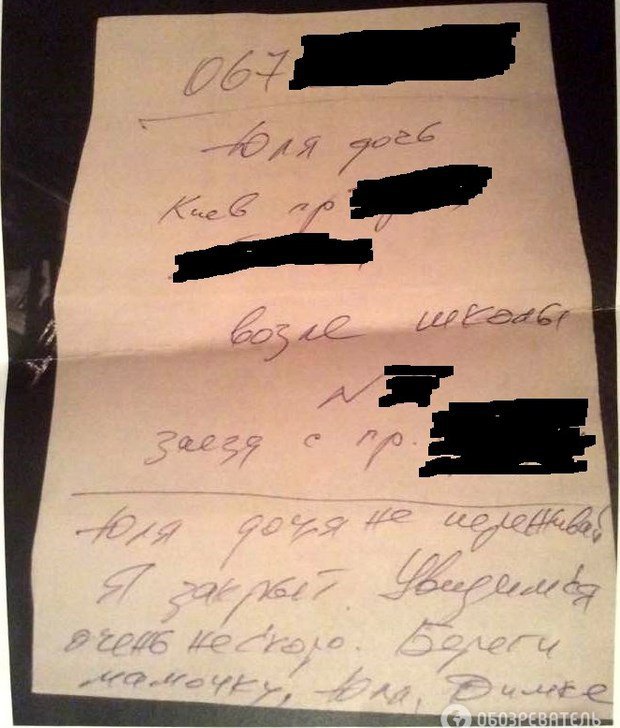 067
Юля дочь
Киев пр
возле школы
N
заезд с пр.
Юля доця не переживай
Я закрыт. Увидимся
очень не скоро. Береги
мамочку, Юля, Димке
ОБОЗРЕВАТЕЛЬ